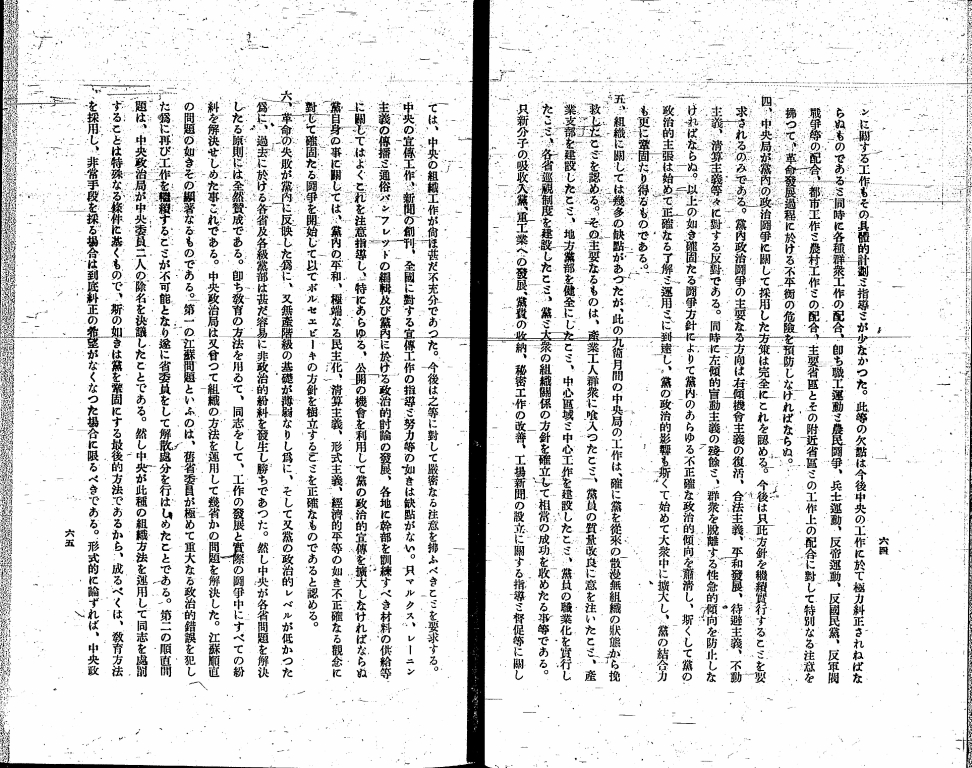 ンに關する工作もその具體的計劃ミ指導ミが少なかつた。此等の欠點は今後中央の工作に於て極力糾正されねばな
らぬものであるミ同時に各種群衆工作の配合、卽ち職工運動ミ農民鬪爭、兵士運動、反帝運動、反國民黨、反軍閥
戰爭等の配合、都市工作ミ農村工作ミの配合、主要省區とその附近省區ミの工作上の配合に對して特別なる注意を
拂つて、革命發展過程に於ける不平衡の危險を預防しなければならぬ。
四、中央局が黨內の政治鬪爭に關して採用した方策は完全にこれを認める。今後は只此方針を機續實行するこミを要
求されるのみである。黨內政治鬪爭の主要なる方向は右傾機會主義の復活、合法主義、平和發展、待避主義、不動
主義、淸算主義等々に對する反對である。同時に左傾的盲動主義の殘餘ミ、群衆を脫離する性急的傾向を防止しな
ければならぬ。以上の如き確固たる鬪爭方針によりて黨內のあらゆる不正確な政治的傾向を肅淸し、斯くして黨の
政治的主張は始めて正確なる了解ミ運用ミに到達し、黨の政治的影響も斯くて始めて大衆中に擴大し、黨の結合力
も更に鞏固たり得るものである。
五、組織に關しては幾多の缺點があつたが、此の九箇月間の中央局の工作は、確に黨を從來の散漫無組織の狀態から挽
救したこミを認める。その主要なるものは、產業工人群衆に喰入つたこミ、黨員の質量改良に意を注いたこミ、產
業支部を建設したこミ、地方黨部を健全にしたこミ、中心區域ミ中心工作を建設したこミ、黨員の職業化を實行し
たこミ、各省巡視制度を建設したこミ、黨ミ大衆の組織關係の方針を確立して相當の成功を收めたる事等である。
只新分子の吸收入黨、重工業への發展、黨費の收納、秘密工作の改善、工場新聞の設立に關する指導ミ督促等に關し
六四
ては、中央の組織工作が尙ほ甚だ不充分であつた。今後は之等に對して嚴密なる注意を拂ふべきこミを要求する。
中央の宣傳工作、新聞の創刊、全國に對する宣傳工作の指導ミ努力等の如きは缺點がない。只マルクス、レーニン
主義の傳播ミ通俗パンフレツドの編輯及び黨內に於ける政治的討論の發展、各地に幹部を訓練すべき材料の供給等
に關してはよくこれを注意指導し、特にあらゆる、公開の機會を利用して黨の政治的宣傳を擴大しなければならぬ
黨自身の事に關しては、黨內の平和、極端なる民主化、淸算主義、形式主義、經濟的平等の如き不正確なる觀念に
對して確固たる鬪爭を開始して以てボルセエビーキの方針を樹立するこミを正確なものであると認める。
六、革命の失敗が黨內に反映した爲に、又無產階級の基礎が薄弱なりし爲に、そして又黨の政治的レベルが低かつた
爲に、過去に於ける各省及各級黨部は甚だ容易に非政治的紛糾を發生し勝ちであつた。然し中央が各省問題を解決
したる原則には全然贊成である。卽ち敎育の方法を用ゐて、同志をして、工作の發展と實際の鬪爭中にすべての紛
糾を解決せしめた事これである。中央政治局は又曾つて組織の方法を運用して幾省かの問題を解決した。江蘇順直
の問題の如きその顯著なるものである。第一の江蘇問題といふのは、舊省委員が極めて重大なる政治的錯誤を犯し
た爲に再び工作を繼續することが不可能となり遂に省委員をして解散處分を行はしめたことである。第二の順直問
題は、中央政治局が中央委員二人の除名を決議したことである。然し中央が此種の組織方法を運用して同志を處罰
することは特殊なる條件に基くもので、斯の如きは黨を鞏固にする最後的方法であるから、成るべくは、敎育方法
を採用し、非常手段を採る場合は到底糾正の希望がなくなつた場合に限るべきである。形式的に論ずれば、中央政
六五